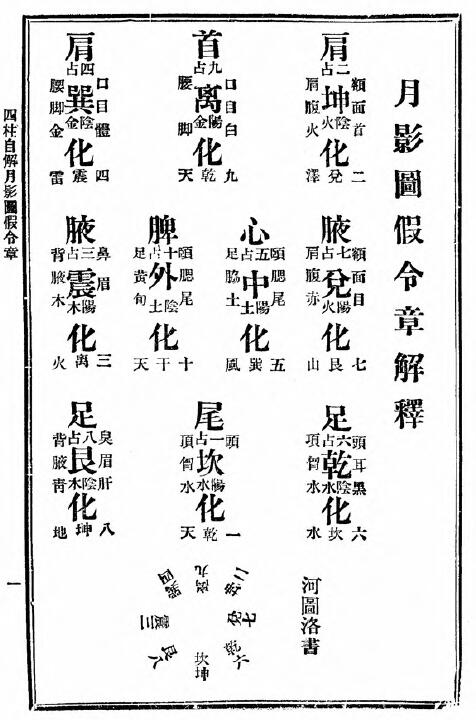 月影圖假令章解釋
額面首二
肩二占坤陰火化兌
肩腹火澤
口目白九
首九占离陽金化乾
腰脚天
口目體四
肩四占巽陰金化震
腰脚金雷
額面目七
腋七占兌陽火化艮
肩腹赤山
頤腮尾五
心五占中陽土化巽
足脇土風
頤腮尾十
脾十占外陰土化干
足黃旬天
鼻眉三
腋三占震陽木化离
背腋木火
頭耳黑六
足六占乾陰水化坎
項智水水
頭一
尾一占坎陽水化乾
頂智水天
臭眉肝八
足八占艮陰木化坤
背腋靑地
河圖洛書
二
七兌
六乾
坎坤
八艮
三震
四巽
九离
四柱自解月影圖假令章
一